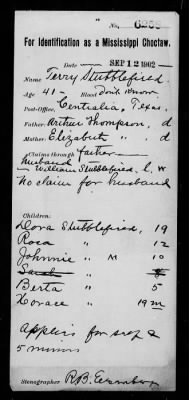 No. 6255
For Identification as a Mississippi Choctaw.
Date SEP 12 1902
Name Terry Stubblefield.
Age 41 - Blood Don't know
Post-Office, Centralia, Texas.
Father: Arthur Thompson, d
Mother: Elizabeth " d
Claims through father
husband
William Stubblefield, l. w
no claim for husband
Children:
Dora Stubblefield, 19
Rosa " 12
Johnnie " M 10
Sarah " 8
Berta " 5
Horace " 19 m
Applies for self &
5 minors
Stenographer R.B.